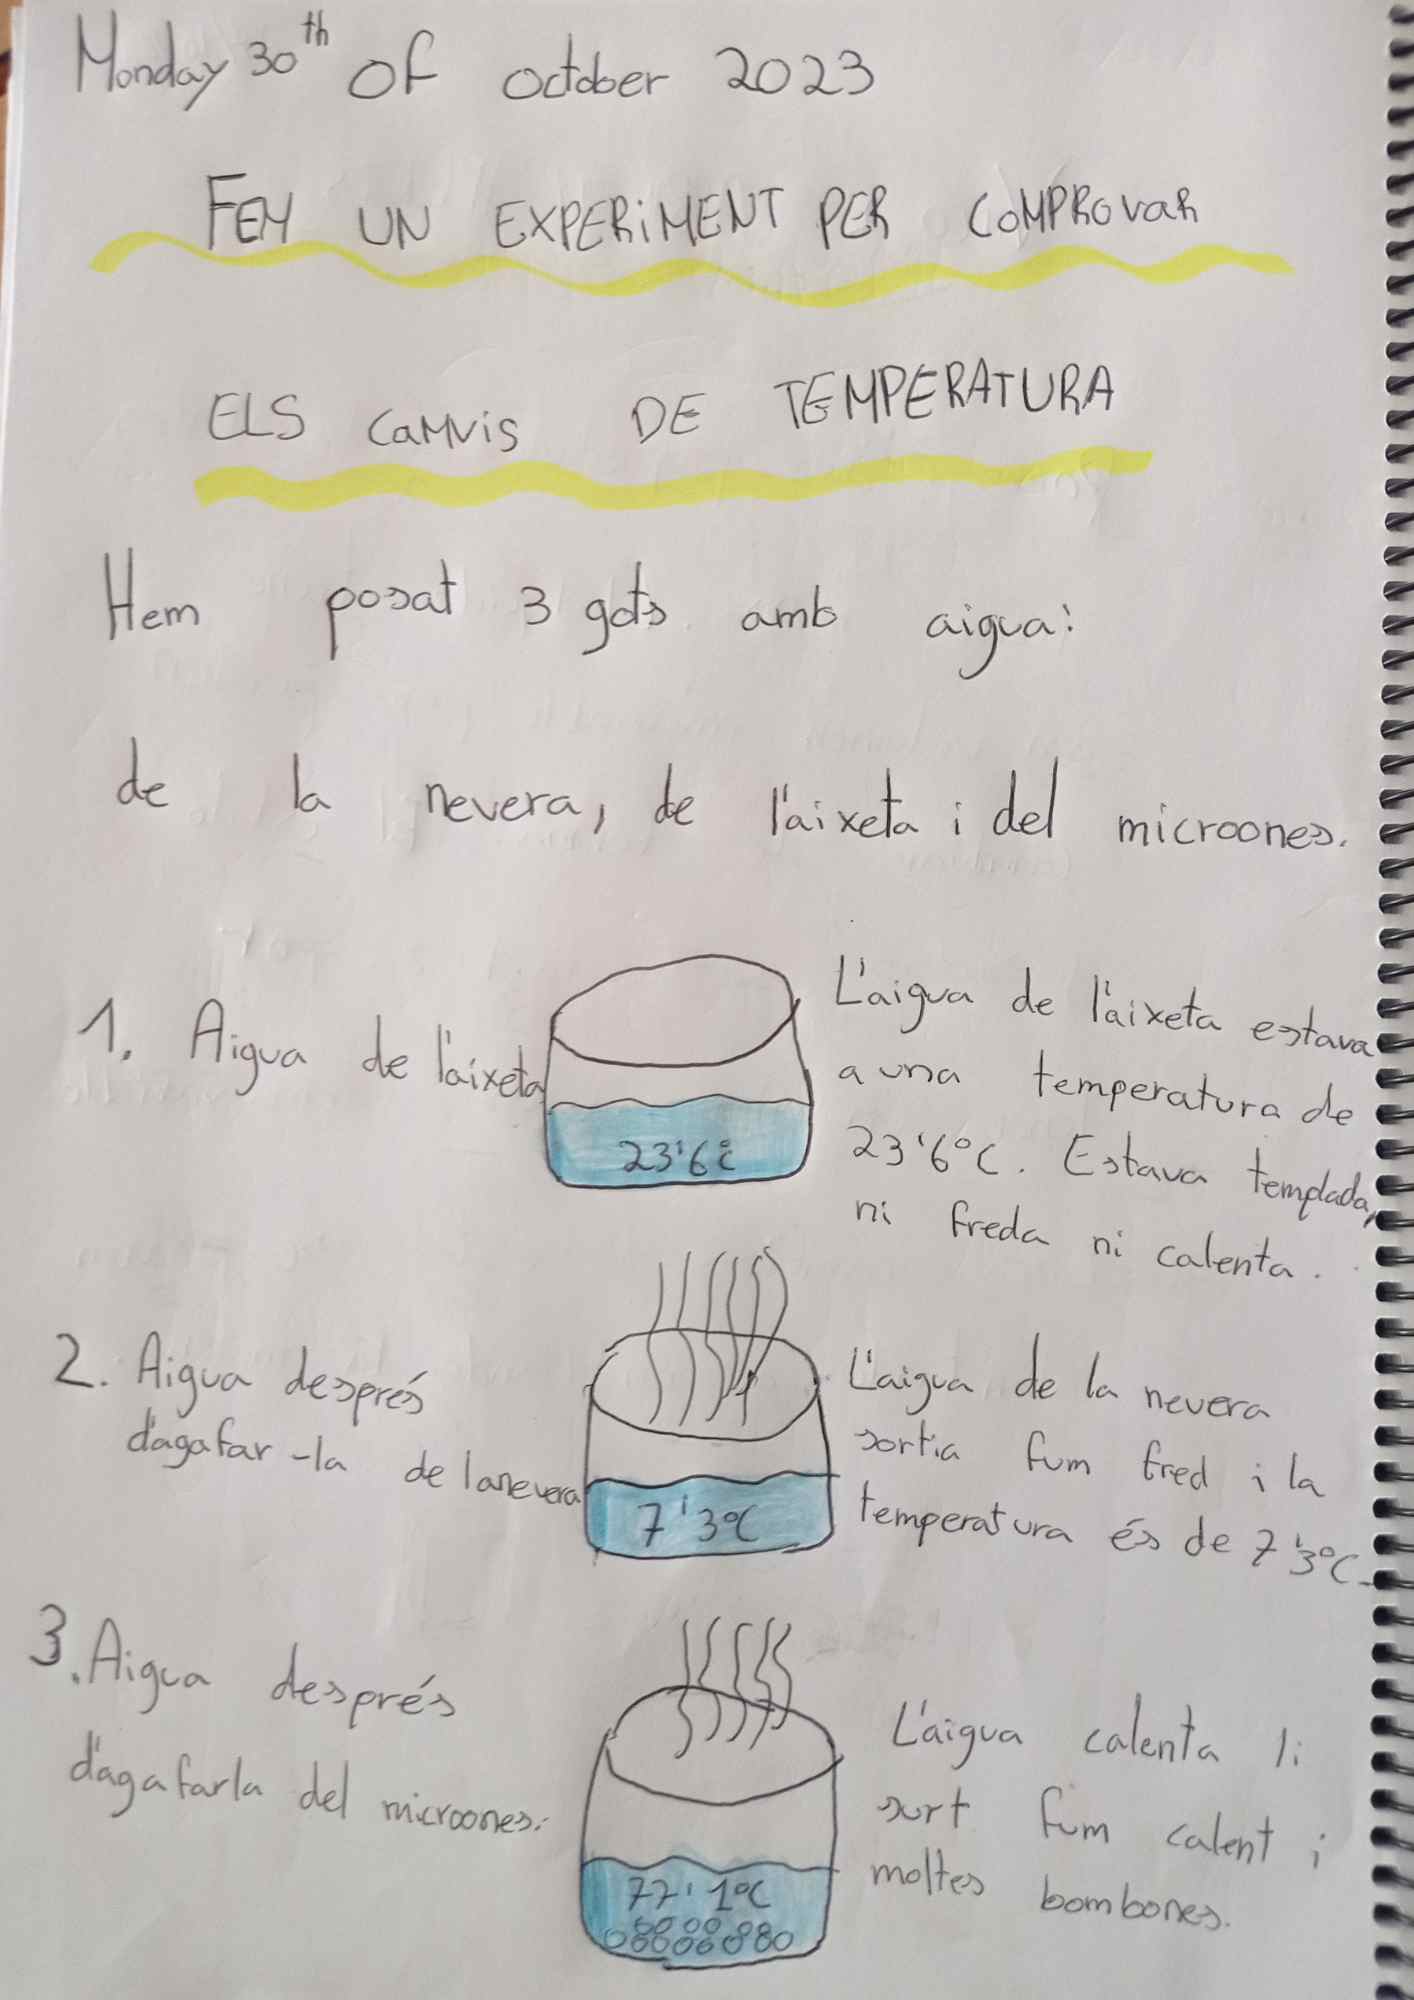 Monday 30th of october 2023
FEM UN EXPERiMENT PER COMPROVAR
ELS CAMVIS DE TEMPERATURA
Hem posat 3 gots amb aigua:
de la nevera, de l'aixeta i del microones.
1. Aigua de l'aixeta
23'6°c
L'aigua de l'aixeta estava
a una temperatura de
23'6°C. Estava templada,
ni freda ni calenta.
2. Aigua després
d'agafar-la de la nevera
7'3°C
L'aigua de la nevera
sortia fum fred i la
temperatura és de 7'3°C.
3. Aigua després
d'agafarla del microones.
77'1°C
L'aigua calenta li
surt fum calent i
moltes bombones.